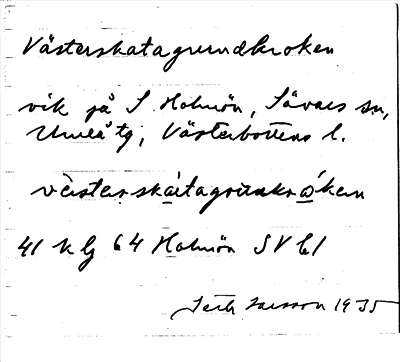 Västerskatagrundkroken
vik på S Holmön, Sävars sn,
Umeå tg, Västerbottens l.
västerskátagrúnkrokən
41 k lj 64 Holmön SV bl
Larsson 1935